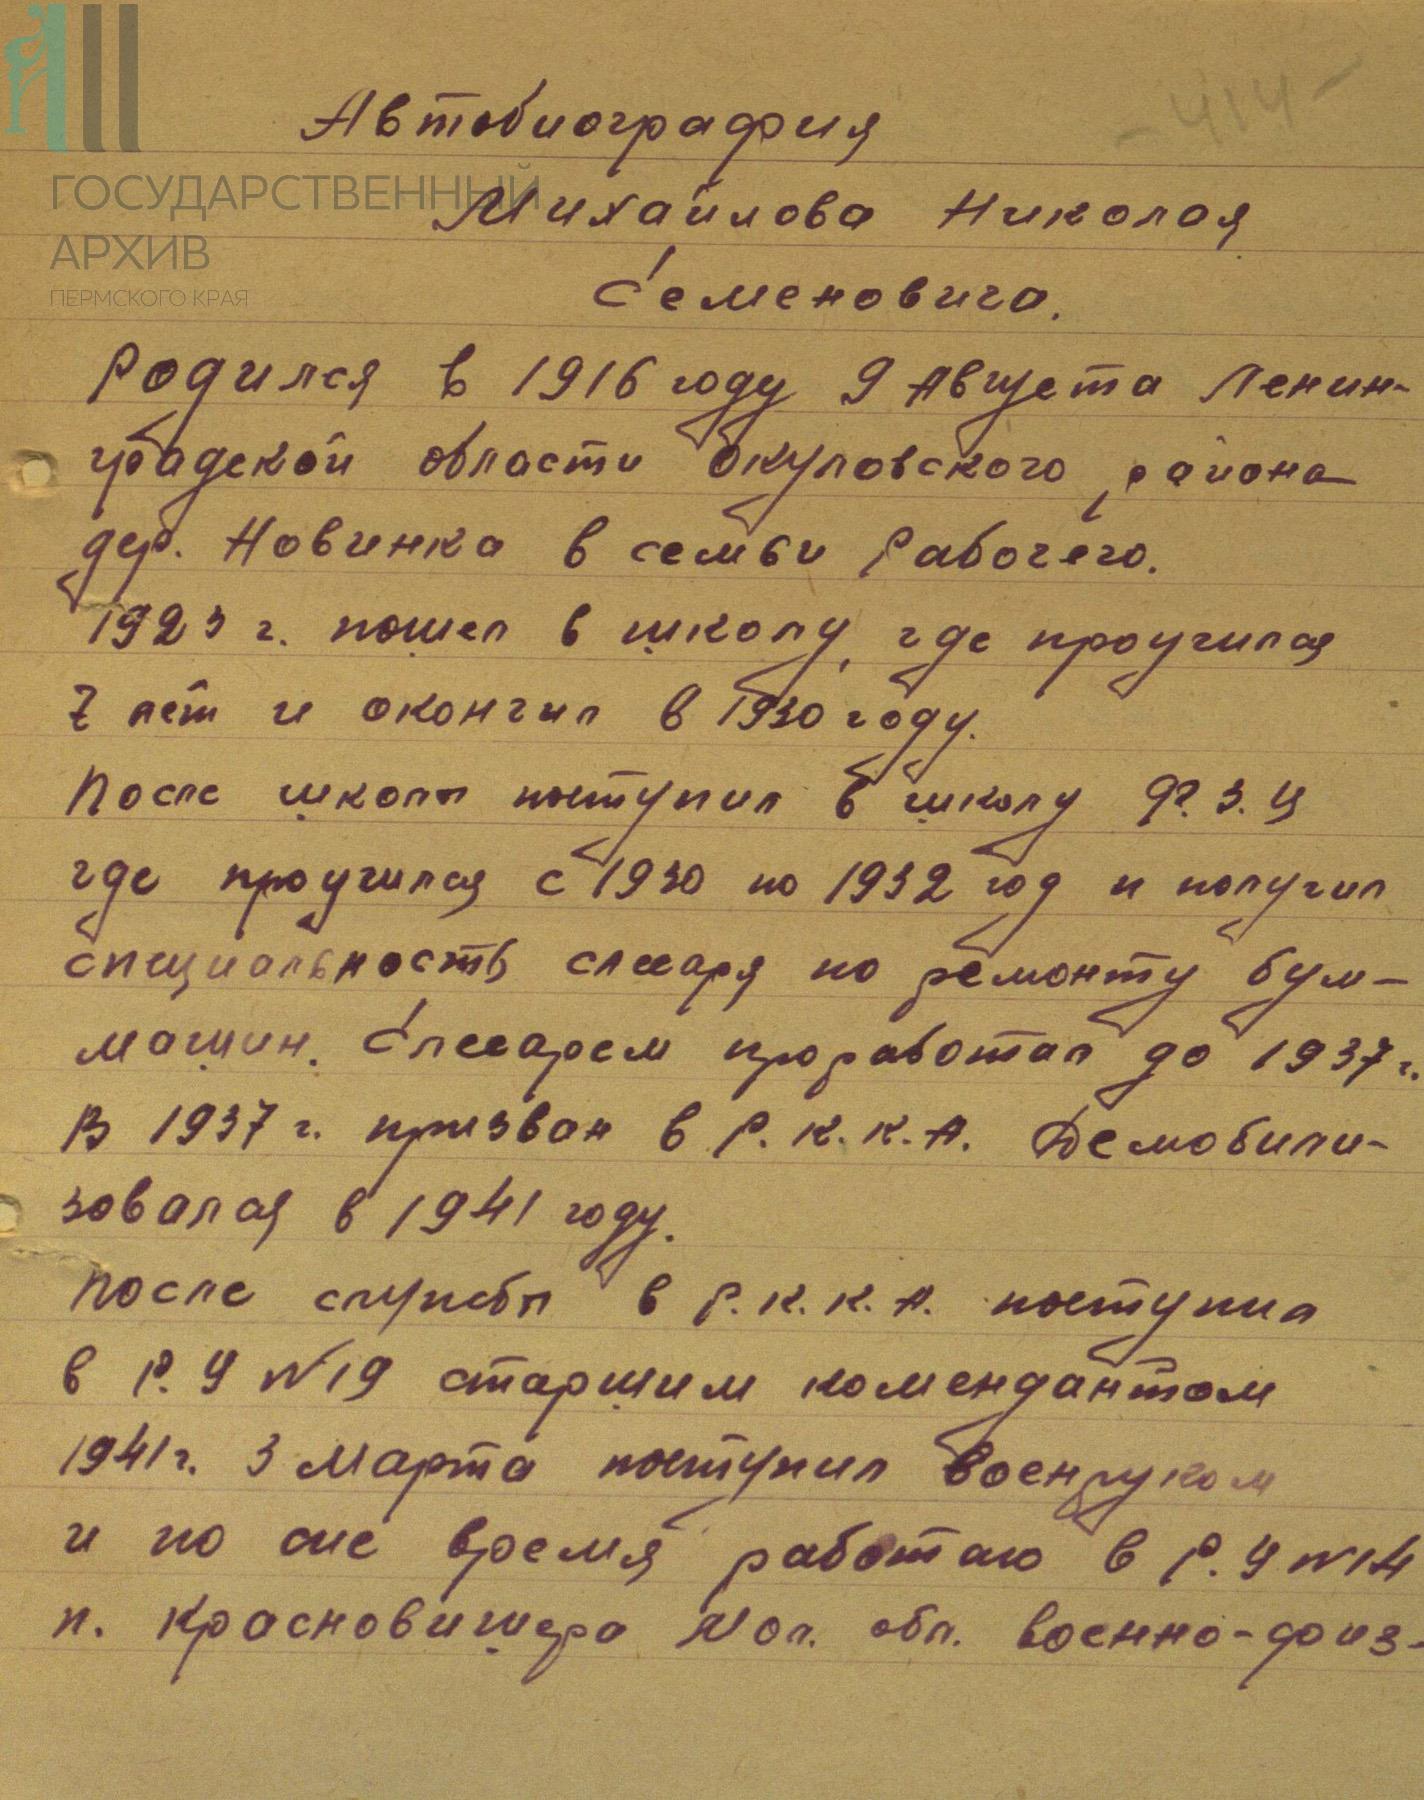 -414-
Автобиография
ГОСУДАРСТВЕННЫЙ
Михайлова Николая
АРХИВ
ПЕРМСКОГО КРАЯ
Семеновича.
Родился в 1916 году 9 Августа Ленин-
градской области Окуловского района
дер. Новинка в семьи Рабочего.
1923 г. пошел в школу, где проучился
7 лет и окончил в 1930 году.
После школы поступил в школу Ф.З.У
где проучился с 1930 по 1932 год и получил
специальность слесаря по ремонту бум-
машин. Слесарем проработал до 1937 г.
В 1937 г. призван в Р.К.К.А. Демобили-
зовался в 1941 году.
После службы в Р.К.К.А. поступил
в Р.У №19 старшим комендантом
1941 г. 3 Марта поступил военруком
и по сие время работаю в Р.У №14
п. Красновишера Мол. обл. военно-физ-